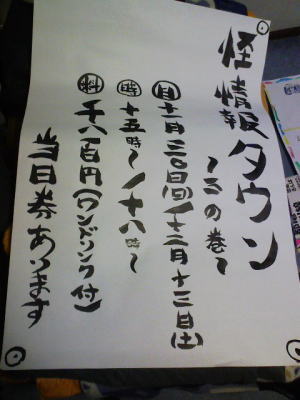 怪情報タウン
～三の巻～
㊐十一月三〇日(日)/十二月十三日(土)
時 十五時～/十八時～
料 千八百円(ワンドリンク付)
当日券あります